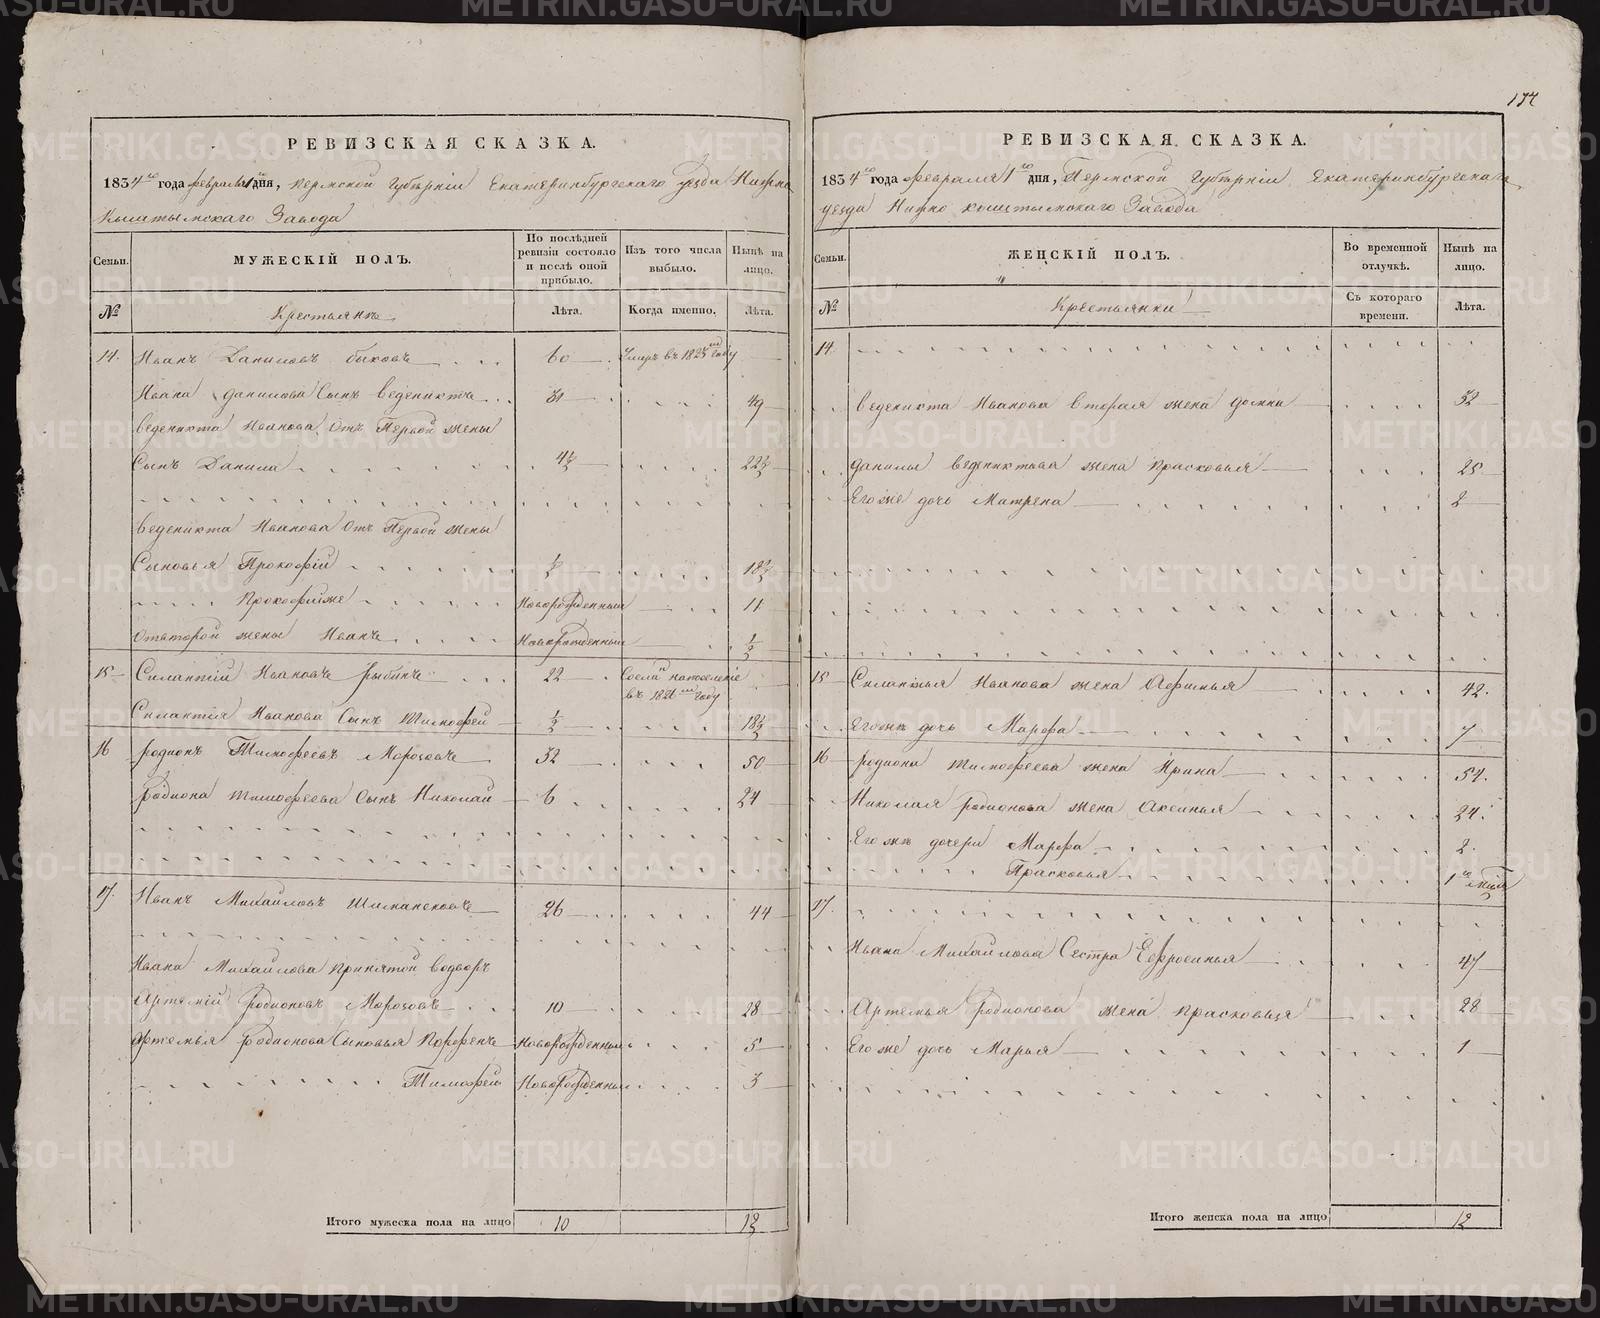 177
РЕВИЗСКАЯ СКАЗКА.
1834го года февраля 1 дня, Пермской Губернiи Екатеринбургскаго уезда Нижно
Кыштымскаго Завода
Семьи.
МУЖЕСКIЙ ПОЛЪ.
По послѣдней ревизiи состояло и послѣ оной прибыло.
Изъ того числа выбыло.
Нынѣ на лицо.
№
Крестьянъ
Лѣта.
Когда именно.
Лѣта.
14. Иванъ Даниловъ быковъ 60 Умеръ въ 1825м году
Ивана Данилова Сынъ Веденихтъ 31 49
Веденихта Иванова Отъ Первой жены
Сынъ Данила 4½ 22½
Веденихта Иванова Отъ Первой жены
Сыновья Прокофiй ½ 18½
Прокофийже Новорожденный 11
Отвторой жены Иванъ Новорожденный ½
15 Силантiй Ивановъ рыбинъ 22 Сосланъ напоселенiе
въ 1826м году
Силантiя Иванова Сынъ Тимофей ½ 18½
16 родионъ Тимофеевъ Морозовъ 32 50
родиона тимофеева Сынъ Николай 6 24
17. Иванъ Михаиловъ Шиманековъ 26 44
Ивана Михаилова принятой водворъ
Артемiй родионовъ Морозовъ 10 28
Артемья родионова Сыновья Порфенъ Новорожденный 5
Тимофей Новорожденный 3
Итого мужеска пола на лицо 10 12
РЕВИЗСКАЯ СКАЗКА.
1834го года февраля 1го дня, Пермской Губернiи Екатеринбургскаго
уезда Нижно кыштымскаго Завода
Семьи.
ЖЕНСКIЙ ПОЛЪ.
Во временной отлучкѣ.
Нынѣ на лицо.
№
Крестьянки
Съ котораго времени.
Лѣта.
14
Веденихта Иванова вторая жена домна 32
Данилы веденихтова жена прасковья 25
Егоже дочь Матрена 2
15 Силантья Иванова жена Афимья 42.
Егоже дочь Марфа 7
16 родиона тимофеева жена Ирина 54.
Николая родионова жена Аксинья 24.
Егоже дочери Марфа 2.
Прасковья
17.
Ивана Михаилова Сестра Ефросинья 47
Артемья родионова жена прасковья 28
Егоже дочь Марья 1
Итого женска пола на лицо 12
METRIKI.GASO-URAL.RU